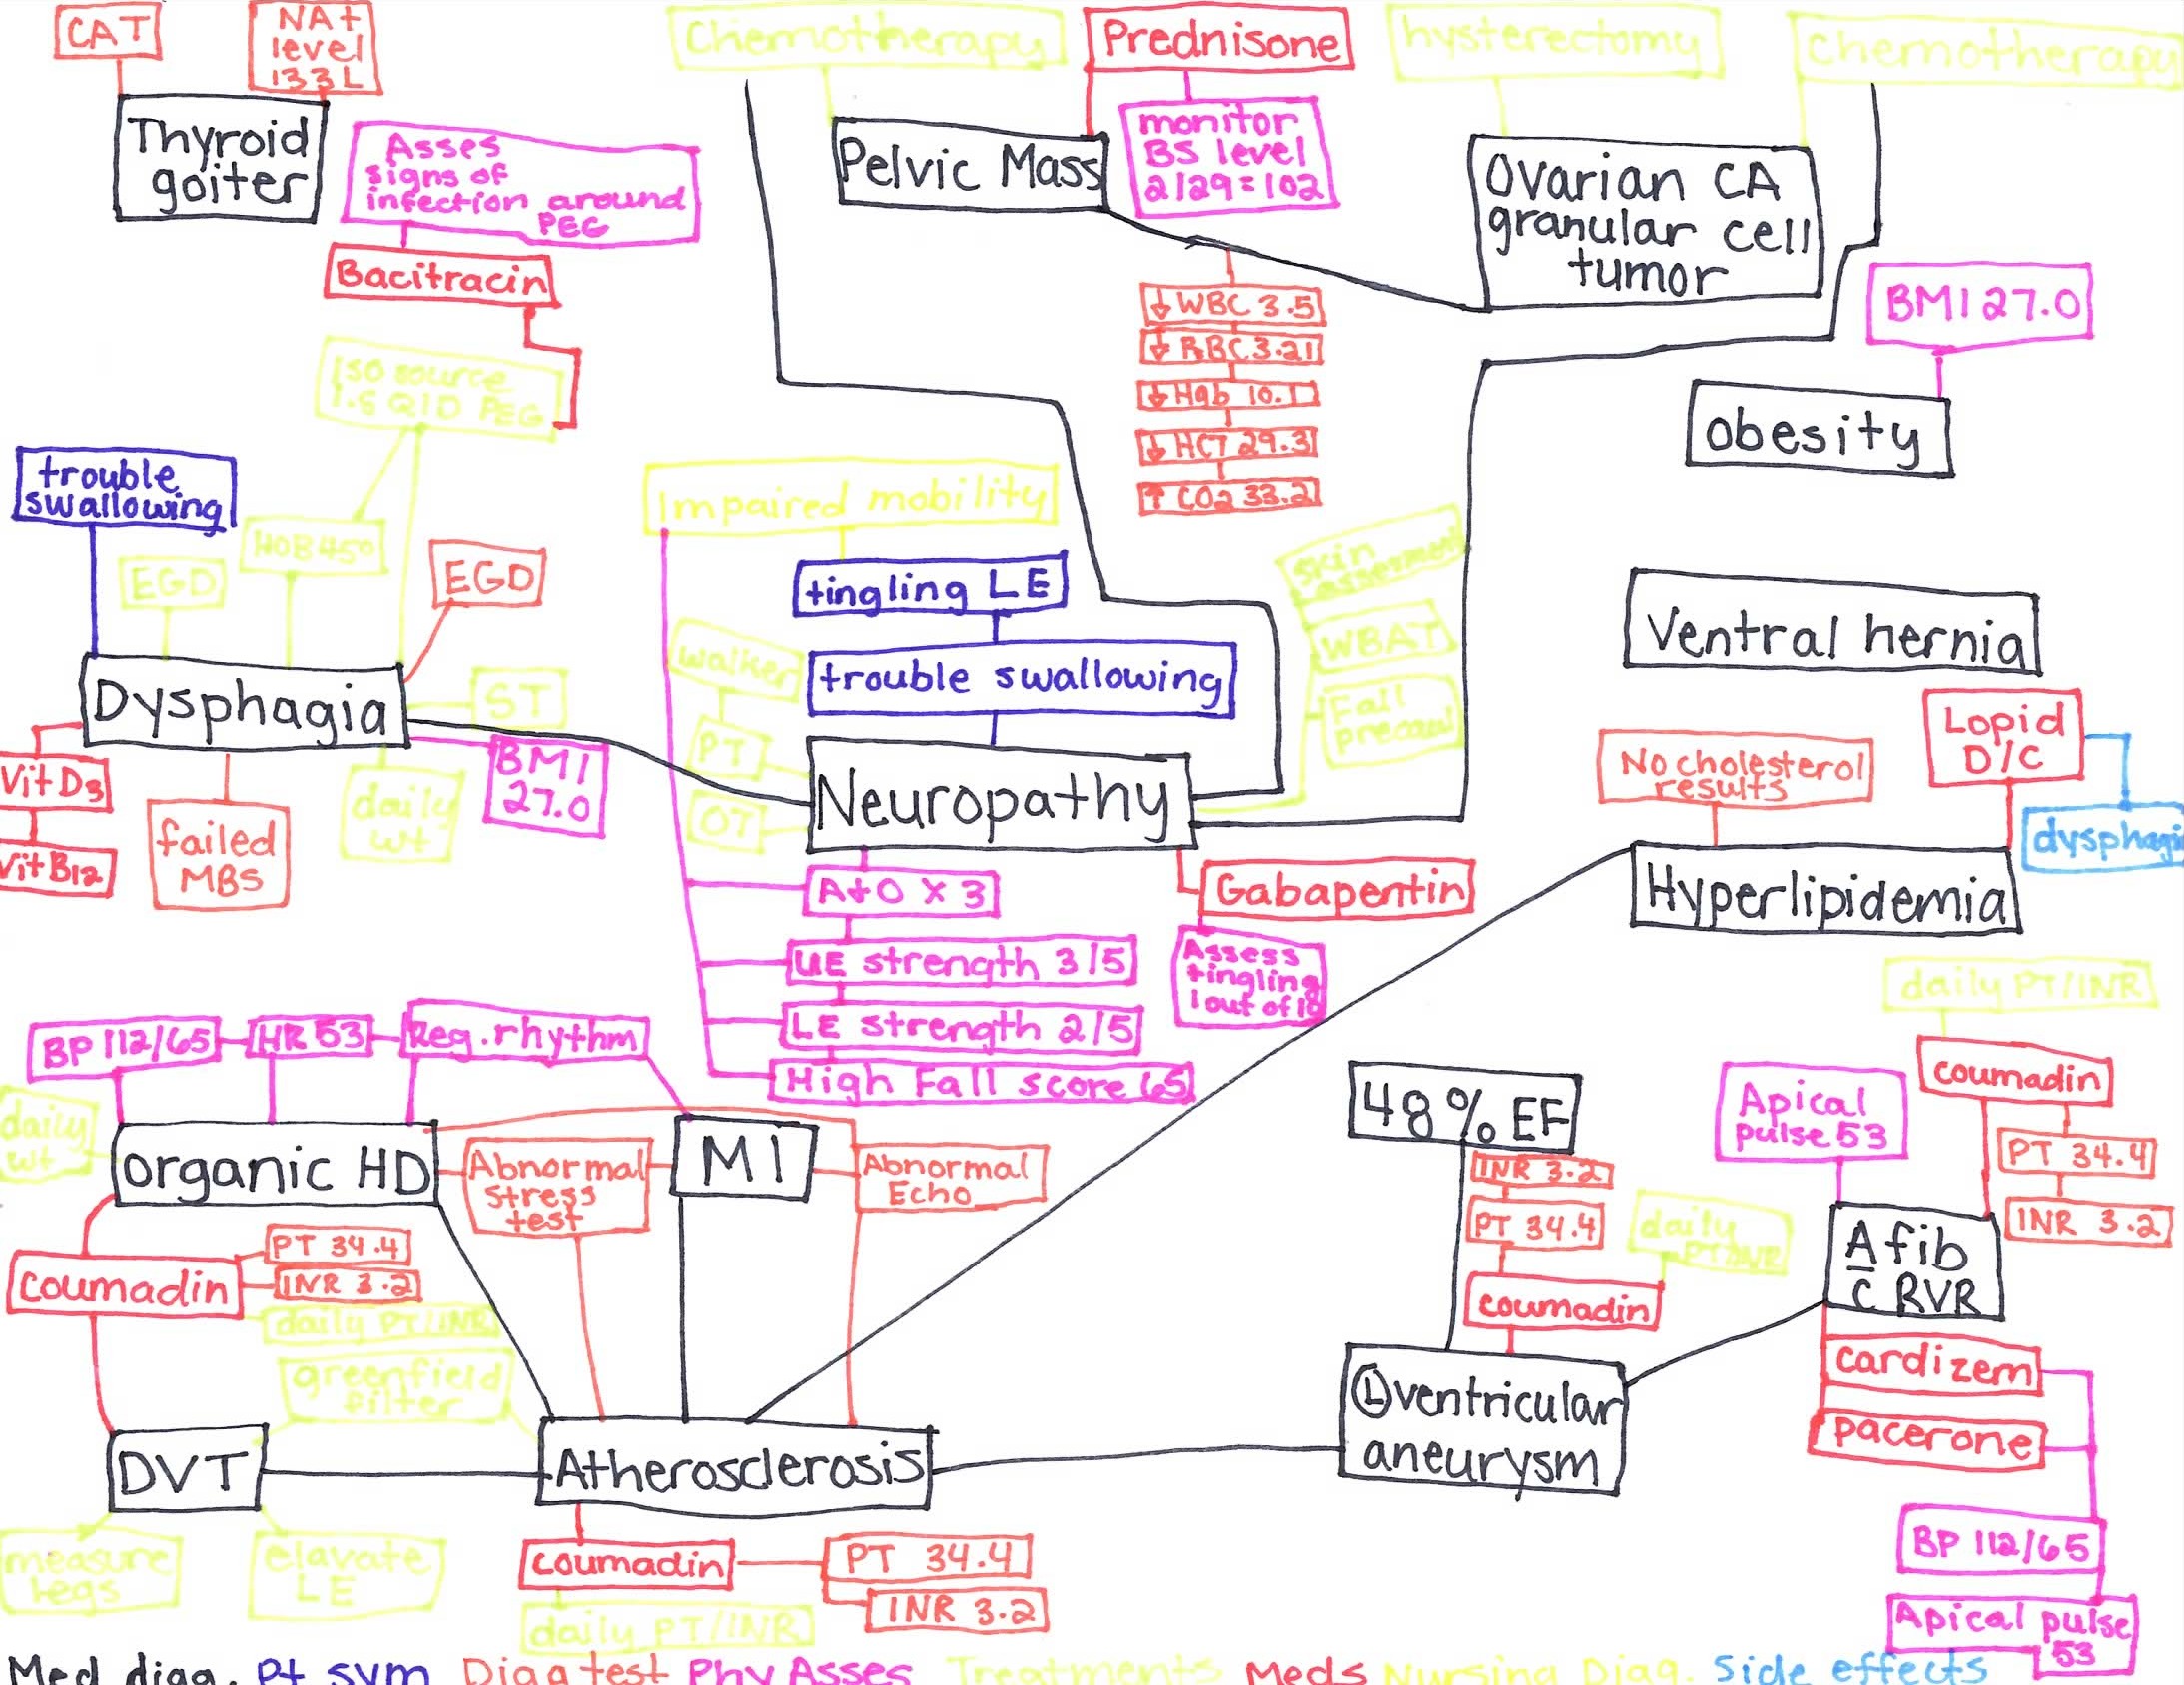 CAT
NA+
level
133L
Chemotherapy
Prednisone
hysterectomy
chemotherapy
Thyroid
goiter
Asses
signs of
infection around
PEG
Pelvic Mass
monitor
BS level
2/29=102
Ovarian CA
granular cell
tumor
Bacitracin
↓ WBC 3.5
↓ RBC 3.21
↓ Hgb 10.1
↓ HCT 29.3
↑ CO2 33.2
BMI 27.0
obesity
ISO source
1.5 QID PEG
trouble
swallowing
EGD
HOB 45°
EGD
Impaired mobility
tingling LE
trouble swallowing
skin
assessment
WBAT
Fall
Ventral hernia
Dysphagia
ST
walker
PT
OT
Neuropathy
Vit D3
Vit B12
failed
MBS
daily
wt
BMI
27.0
No cholesterol
results
Lopid
D/C
dysphagia
Hyperlipidemia
A+O x 3
UE strength 3/5
LE strength 2/5
High Fall score 65
Gabapentin
Assess
tingling
1 out of 10
BP 112/65
HR 53
Reg. rhythm
daily
wt
organic HD
Abnormal
stress
test
MI
Abnormal
Echo
48% EF
INR 3.2
PT 34.4
daily
PT/INR
coumadin
Apical
pulse 53
daily PT/INR
coumadin
PT 34.4
INR 3.2
A fib
c̅ RVR
coumadin
PT 34.4
INR 3.2
daily PT/INR
greenfield
filter
DVT
Atherosclerosis
Ⓛventricular
aneurysm
cardizem
pacerone
BP 112/65
Apical pulse
53
measure
legs
elavate
LE
coumadin
PT 34.4
INR 3.2
daily PT/INR
Med diag. Pt sym Diag test Phy Asses Treatments Meds Nursing Diag. Side effects